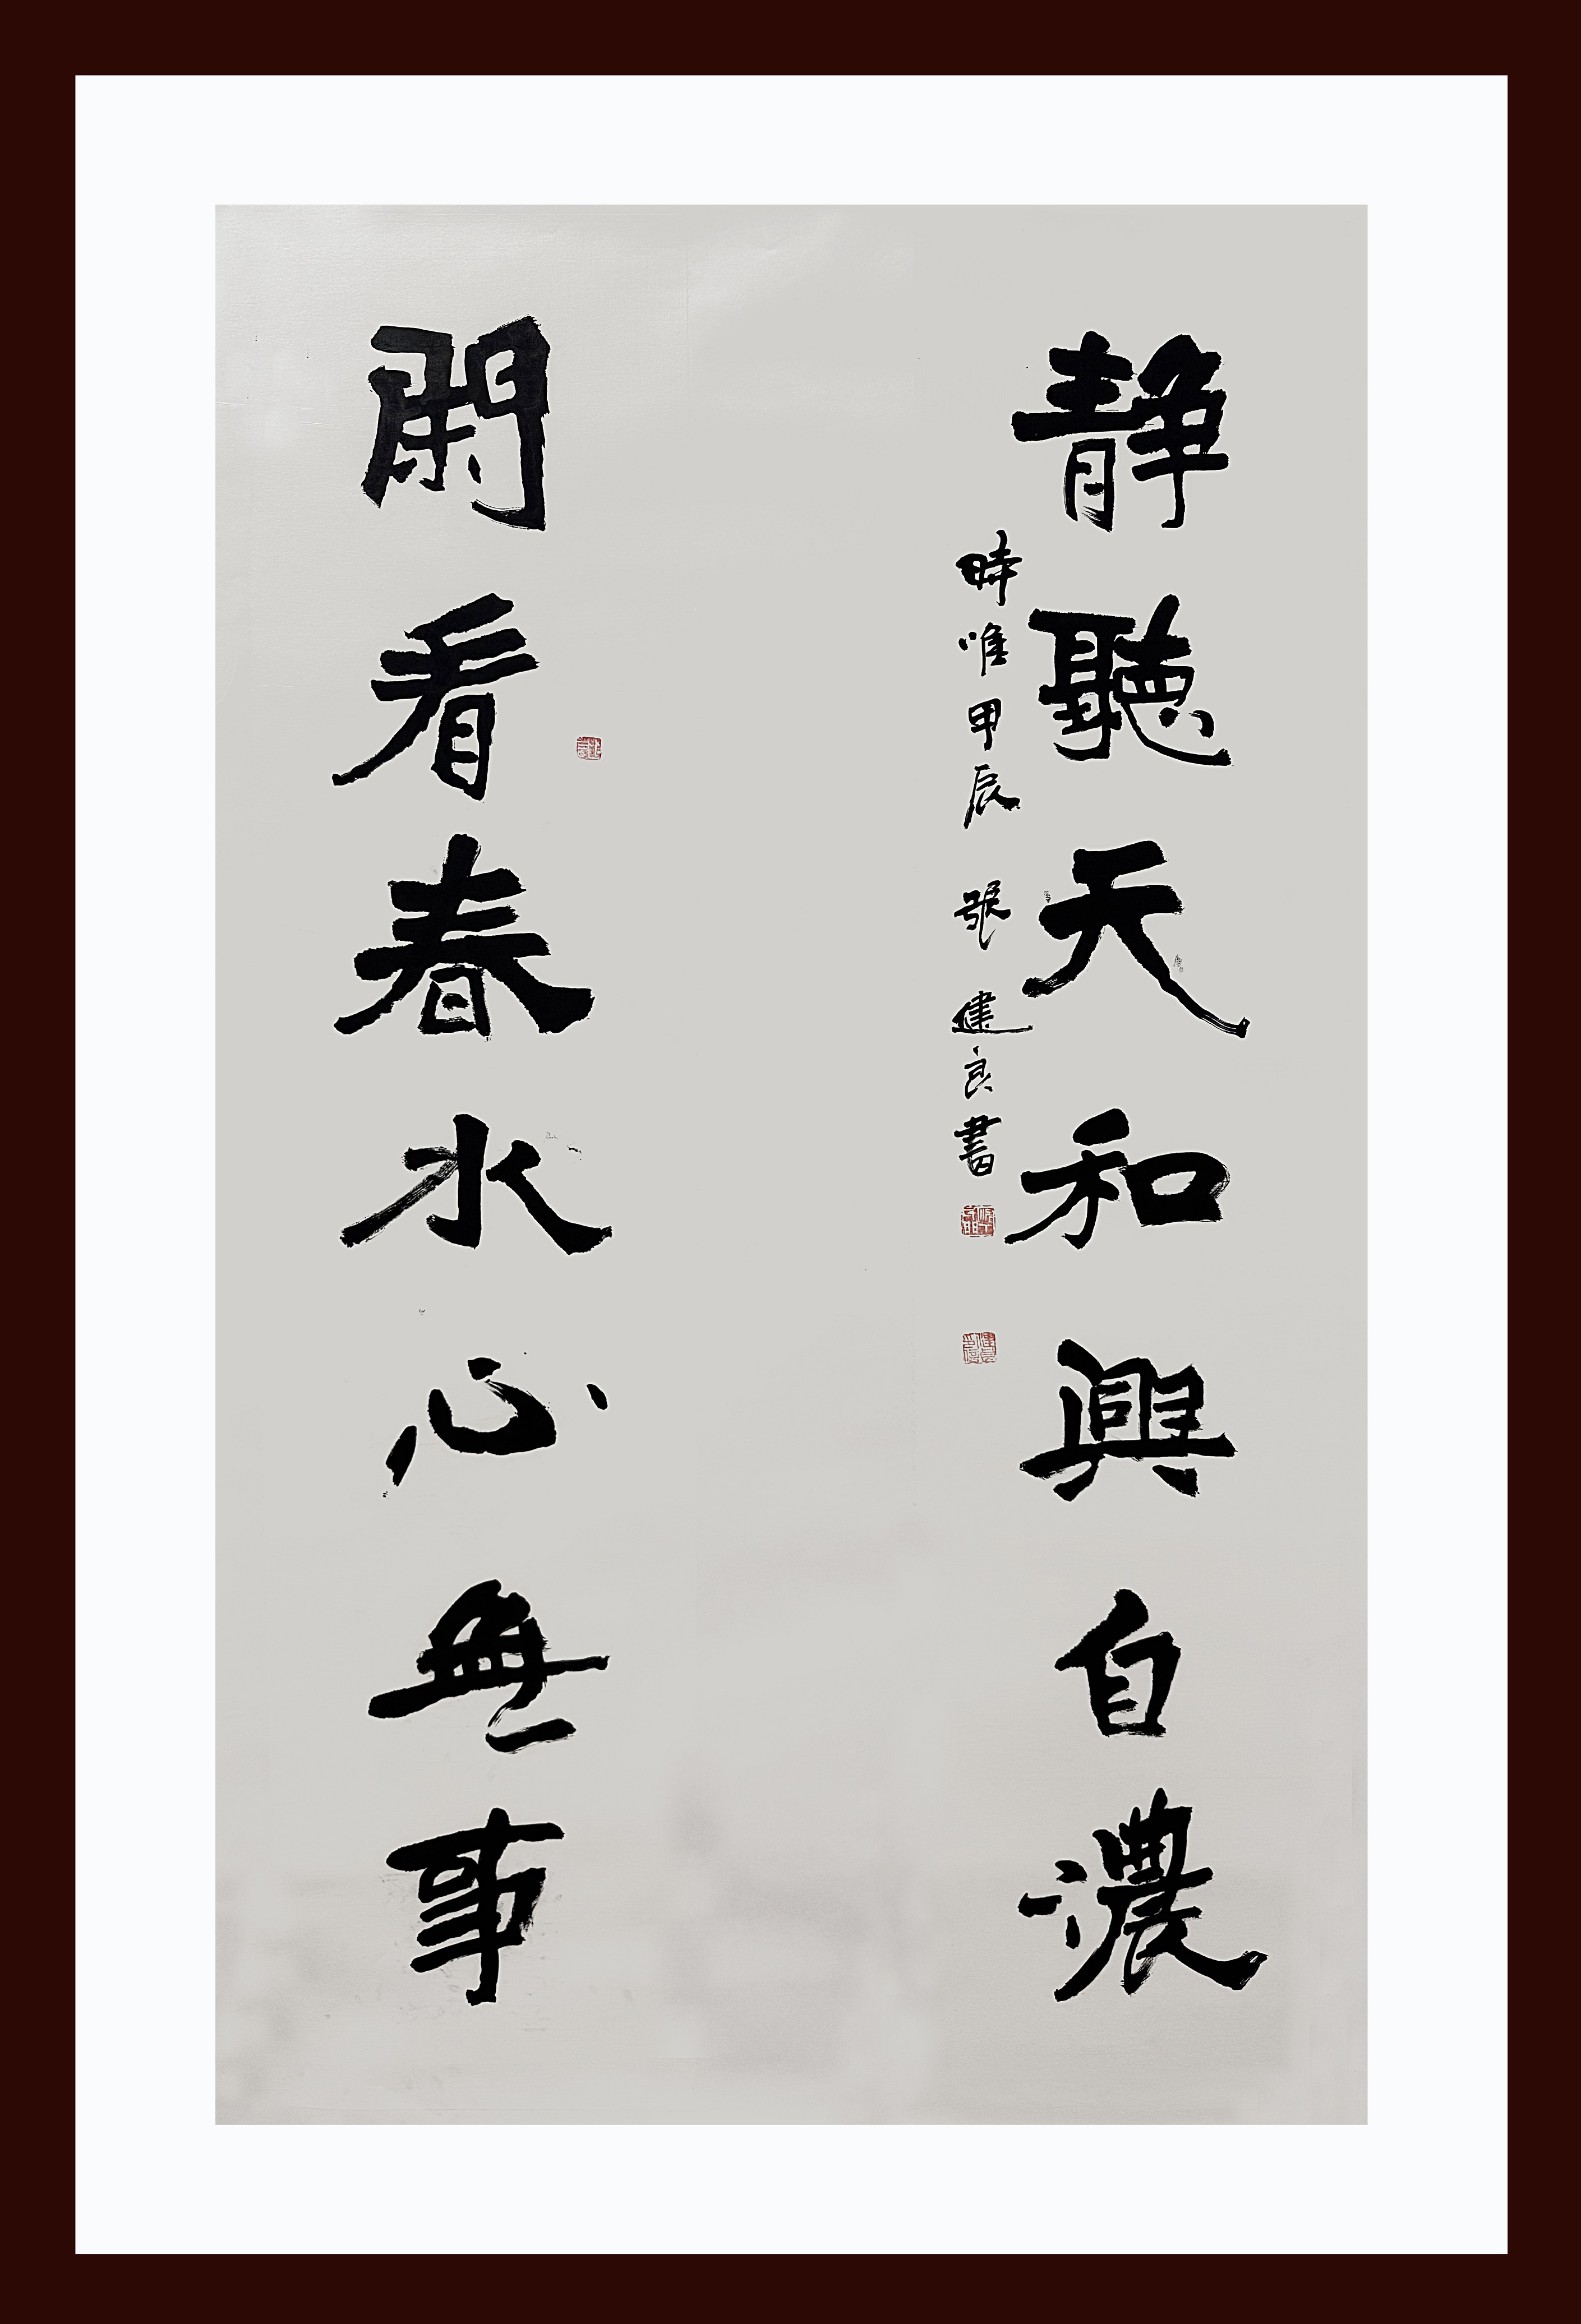 静聽天和興自濃
時唯甲辰 張建良書
閑看春水心無事